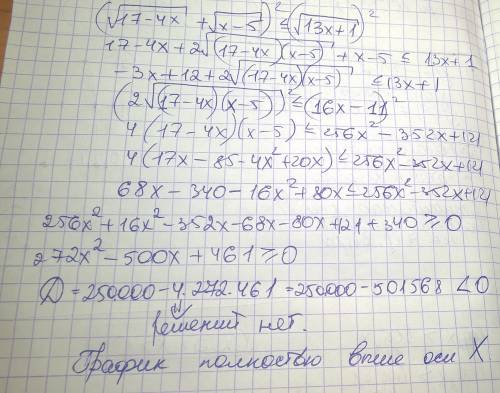 (√(17-4x) + √(x-5))² ≤ (√(13x+1))²
17-4x+2√((17-4x)(x-5)) + x-5 ≤ 13x+1
-3x+12+2√((17-4x)(x-5)) ≤ 13x+1
(2√((17-4x)(x-5)))² ≤ (16x-11)²
4(17-4x)(x-5) ≤ 256x²-352x+121
4(17x-85-4x²+20x) ≤ 256x²-352x+121
68x-340-16x²+80x ≤ 256x²-352x+121
256x²+16x²-352x-68x-80x+121+340 ≥ 0
272x²-500x+461 ≥ 0
D = 250000-4·272·461 = 250000-501568 < 0
⇓
решений нет.
График полностью выше оси X